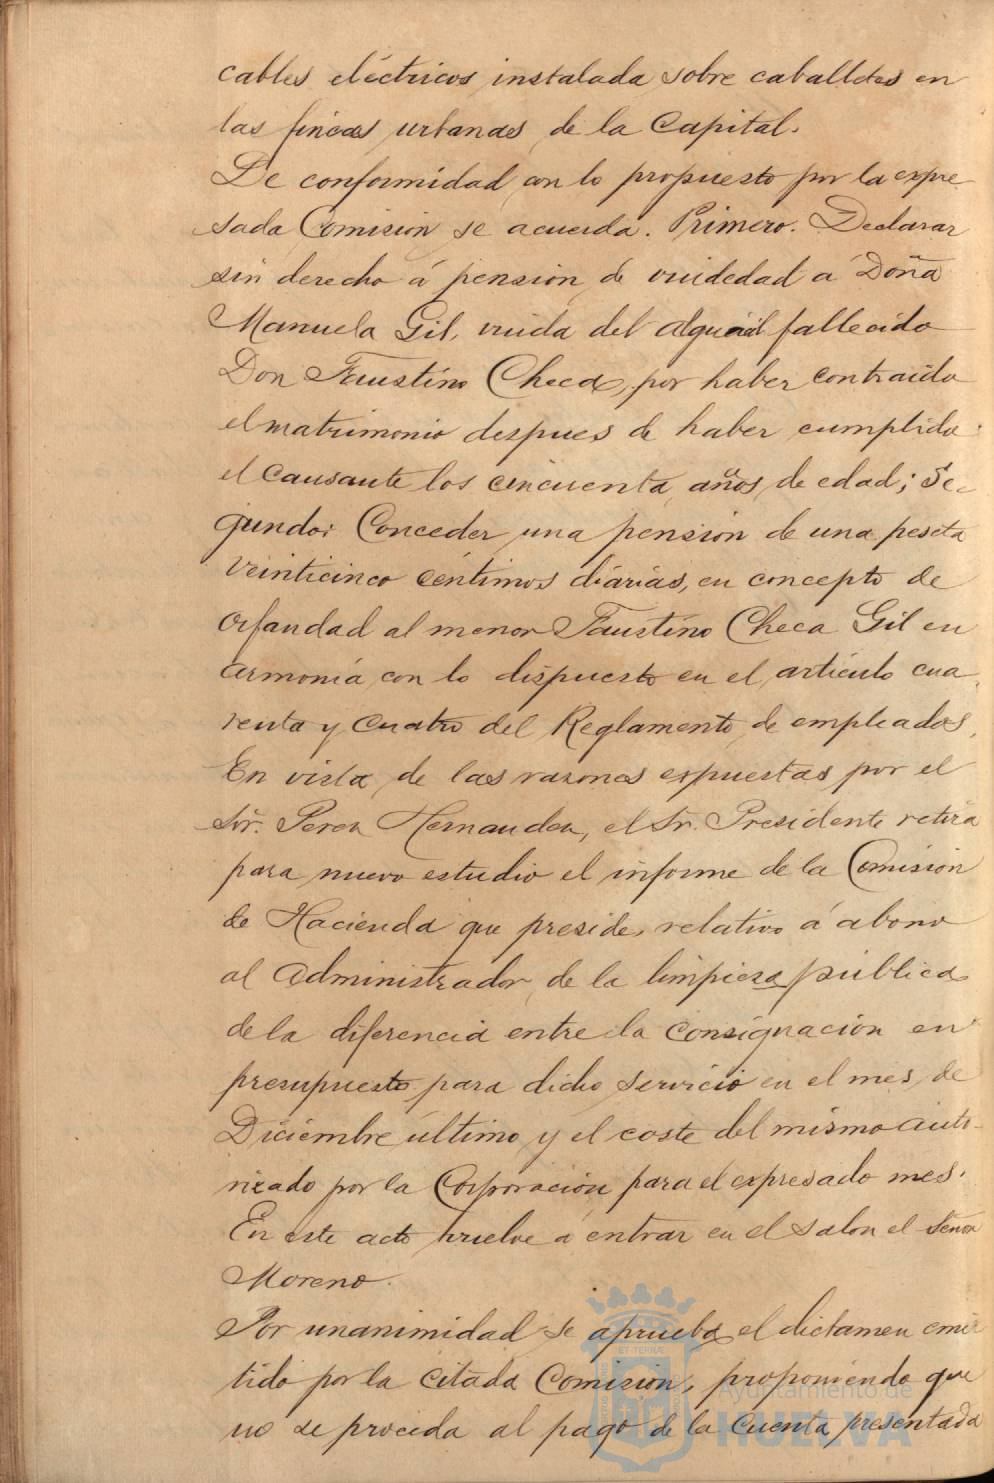 cables eléctricos instalada sobre caballetes en
las fincas urbanas de la Capital.
De conformidad con lo propuesto por la expre
sada Comision se acuerda. Primero. Declarar
sin derecho á pensión de viudedad a Doña
Manuela Gil, viuda del alguacil fallecido
Don Faustino Checa, por haber contraido
el matrimonio despues de haber cumplido
el causante los cincuenta años de edad; Se-
gundo: Conceder una pensión de una peseta
veinticinco céntimos diarias, en concepto de
orfandad al menor Faustino Checa Gil en
armonía con lo dispuesto en el artículo cua
renta y cuatro del Reglamento de empleados,
En vista de las razones expuestas por el
Sor. Perez Hernandez, el Sr. Presidente retira
para nuevo estudio el informe de la Comisión
de Hacienda que preside, relativo á abono
al Administrador de la limpieza pública
de la diferencia entre la consignación en
presupuesto para dicho servicio en el mes de
Diciembre último y el coste del mismo auto-
rizado por la Corporación para el expresado mes.
En este acto vuelve á entrar en el salon el Señor
Moreno.
Por unanimidad se aprueba el dictamen emi
tido por la citada Comision, proponiendo que
no se proceda al pago de la cuenta presentada
ET·TERRÆ
Ayuntamiento de
HUELVA